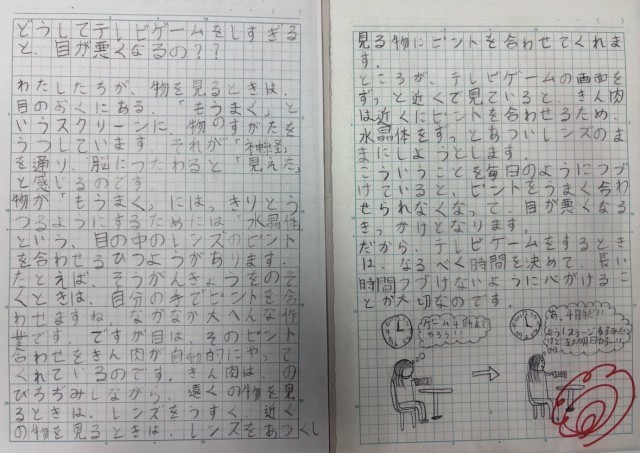 どうしてテレビゲームをしすぎる
と、目が悪くなるの？？
わたしたちが、物を見るときは、
目のおくにある、「もうまく」と
いうスクリーンに、物のすがたを
うつしています。それが「神経」
を通り、脳につたわると「見えた」
と感じるのです。
物が「もうまく」には、きりとう
つるようにするためには「水晶体」
という、目の中のレンズのピント
を合わせるひつようがあります。
たとえば、そうがんきょうをのぞ
くときは、自分の手でピントを合
わせますね なかなか大へんな作
業です。ですが目は、そのピント
合わせをきん肉が自動的にやって
くれているのです。きん肉は、の
びちぢみしながら、遠くの物を見
るときは、レンズをうすく、近く
の物を見るときは、レンズをあつくし
見る物にピントを合わせてくれま
す。
ところが、テレビゲームの画面を
ずっと近くで見ていると、きん肉
は近くにピントを合わせるため、
水晶体をずっとあついレンズのま
まにしようとします。
こういうことを毎日のようにつづ
けていると、ピントをうまく合わ
せられなくなって、目が悪くなる
きっかけとなります。
だから、テレビゲームをするとき
は、なるべく時間を決めて、長い
時間つづけないように心がけるこ
とが大切なのです。
ゲーム4時まで
やろう！
あ、4時だ！！